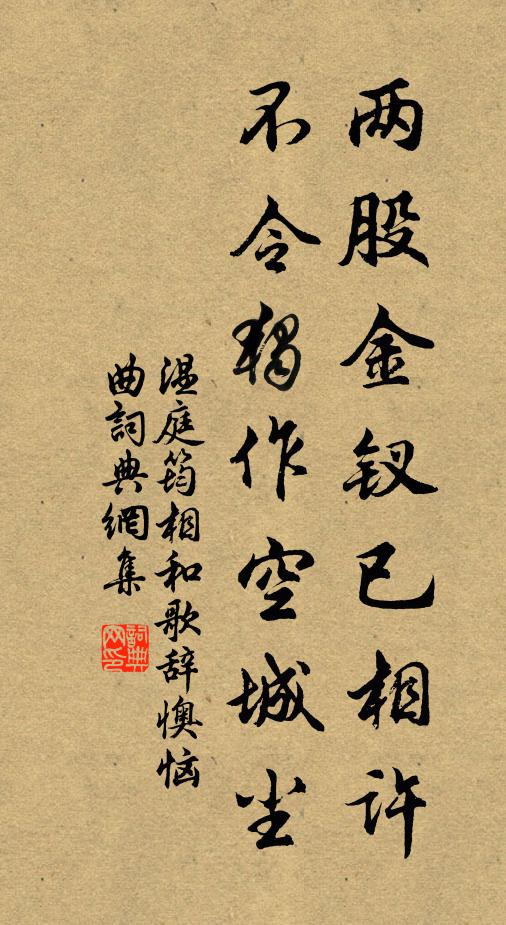 两股金钗已相许
不令独作空城尘
温庭筠相和歌辞懊恼
曲詞典網集
詞典网印